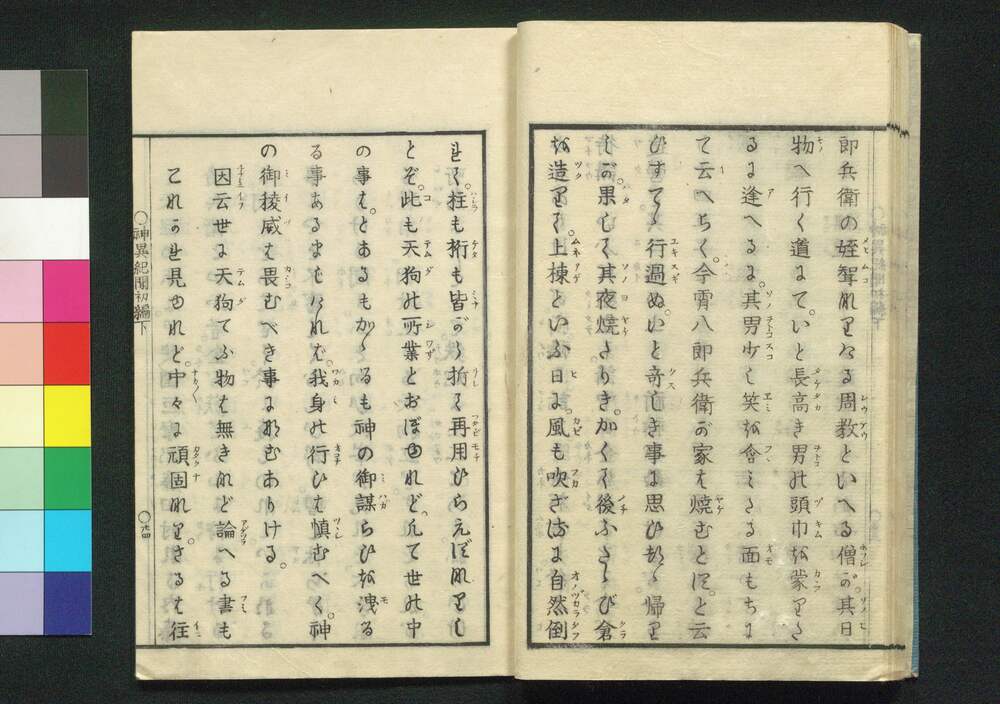 郎兵衛の姪聟なりける周教といへる僧が。其日
物へ行く道にて。いと長高き男の頭巾を蒙りた
るに逢へるに。其男少し笑を含みたる面もちに
て云へらく。今霄八郎兵衛が家は焼むとす。と云
ひすてゝ行過ぬ。いと奇しき事に思ひつゝ帰り
しが。果して其夜焼たりき。かくて後ふたゝび倉
を造りて。上棟といふ日に。風も吹ざるに自然倒
れて。柱も桁も皆がら折て再用ひらえずなりし
とぞ。此も天狗の所業とおぼゆれど。凡て世の中
の事は。とあるもかゝるも神の御謀らひを洩る
る事あるまじければ。我身の行ひを慎むべく。神
の御稜威を畏むべき事になむありける。
因云世に天狗てふ物は無きなど論へる書も
これかれ見ゆれど。中々に頑固なり。さるは往
○神異紀聞初編下
○廿四